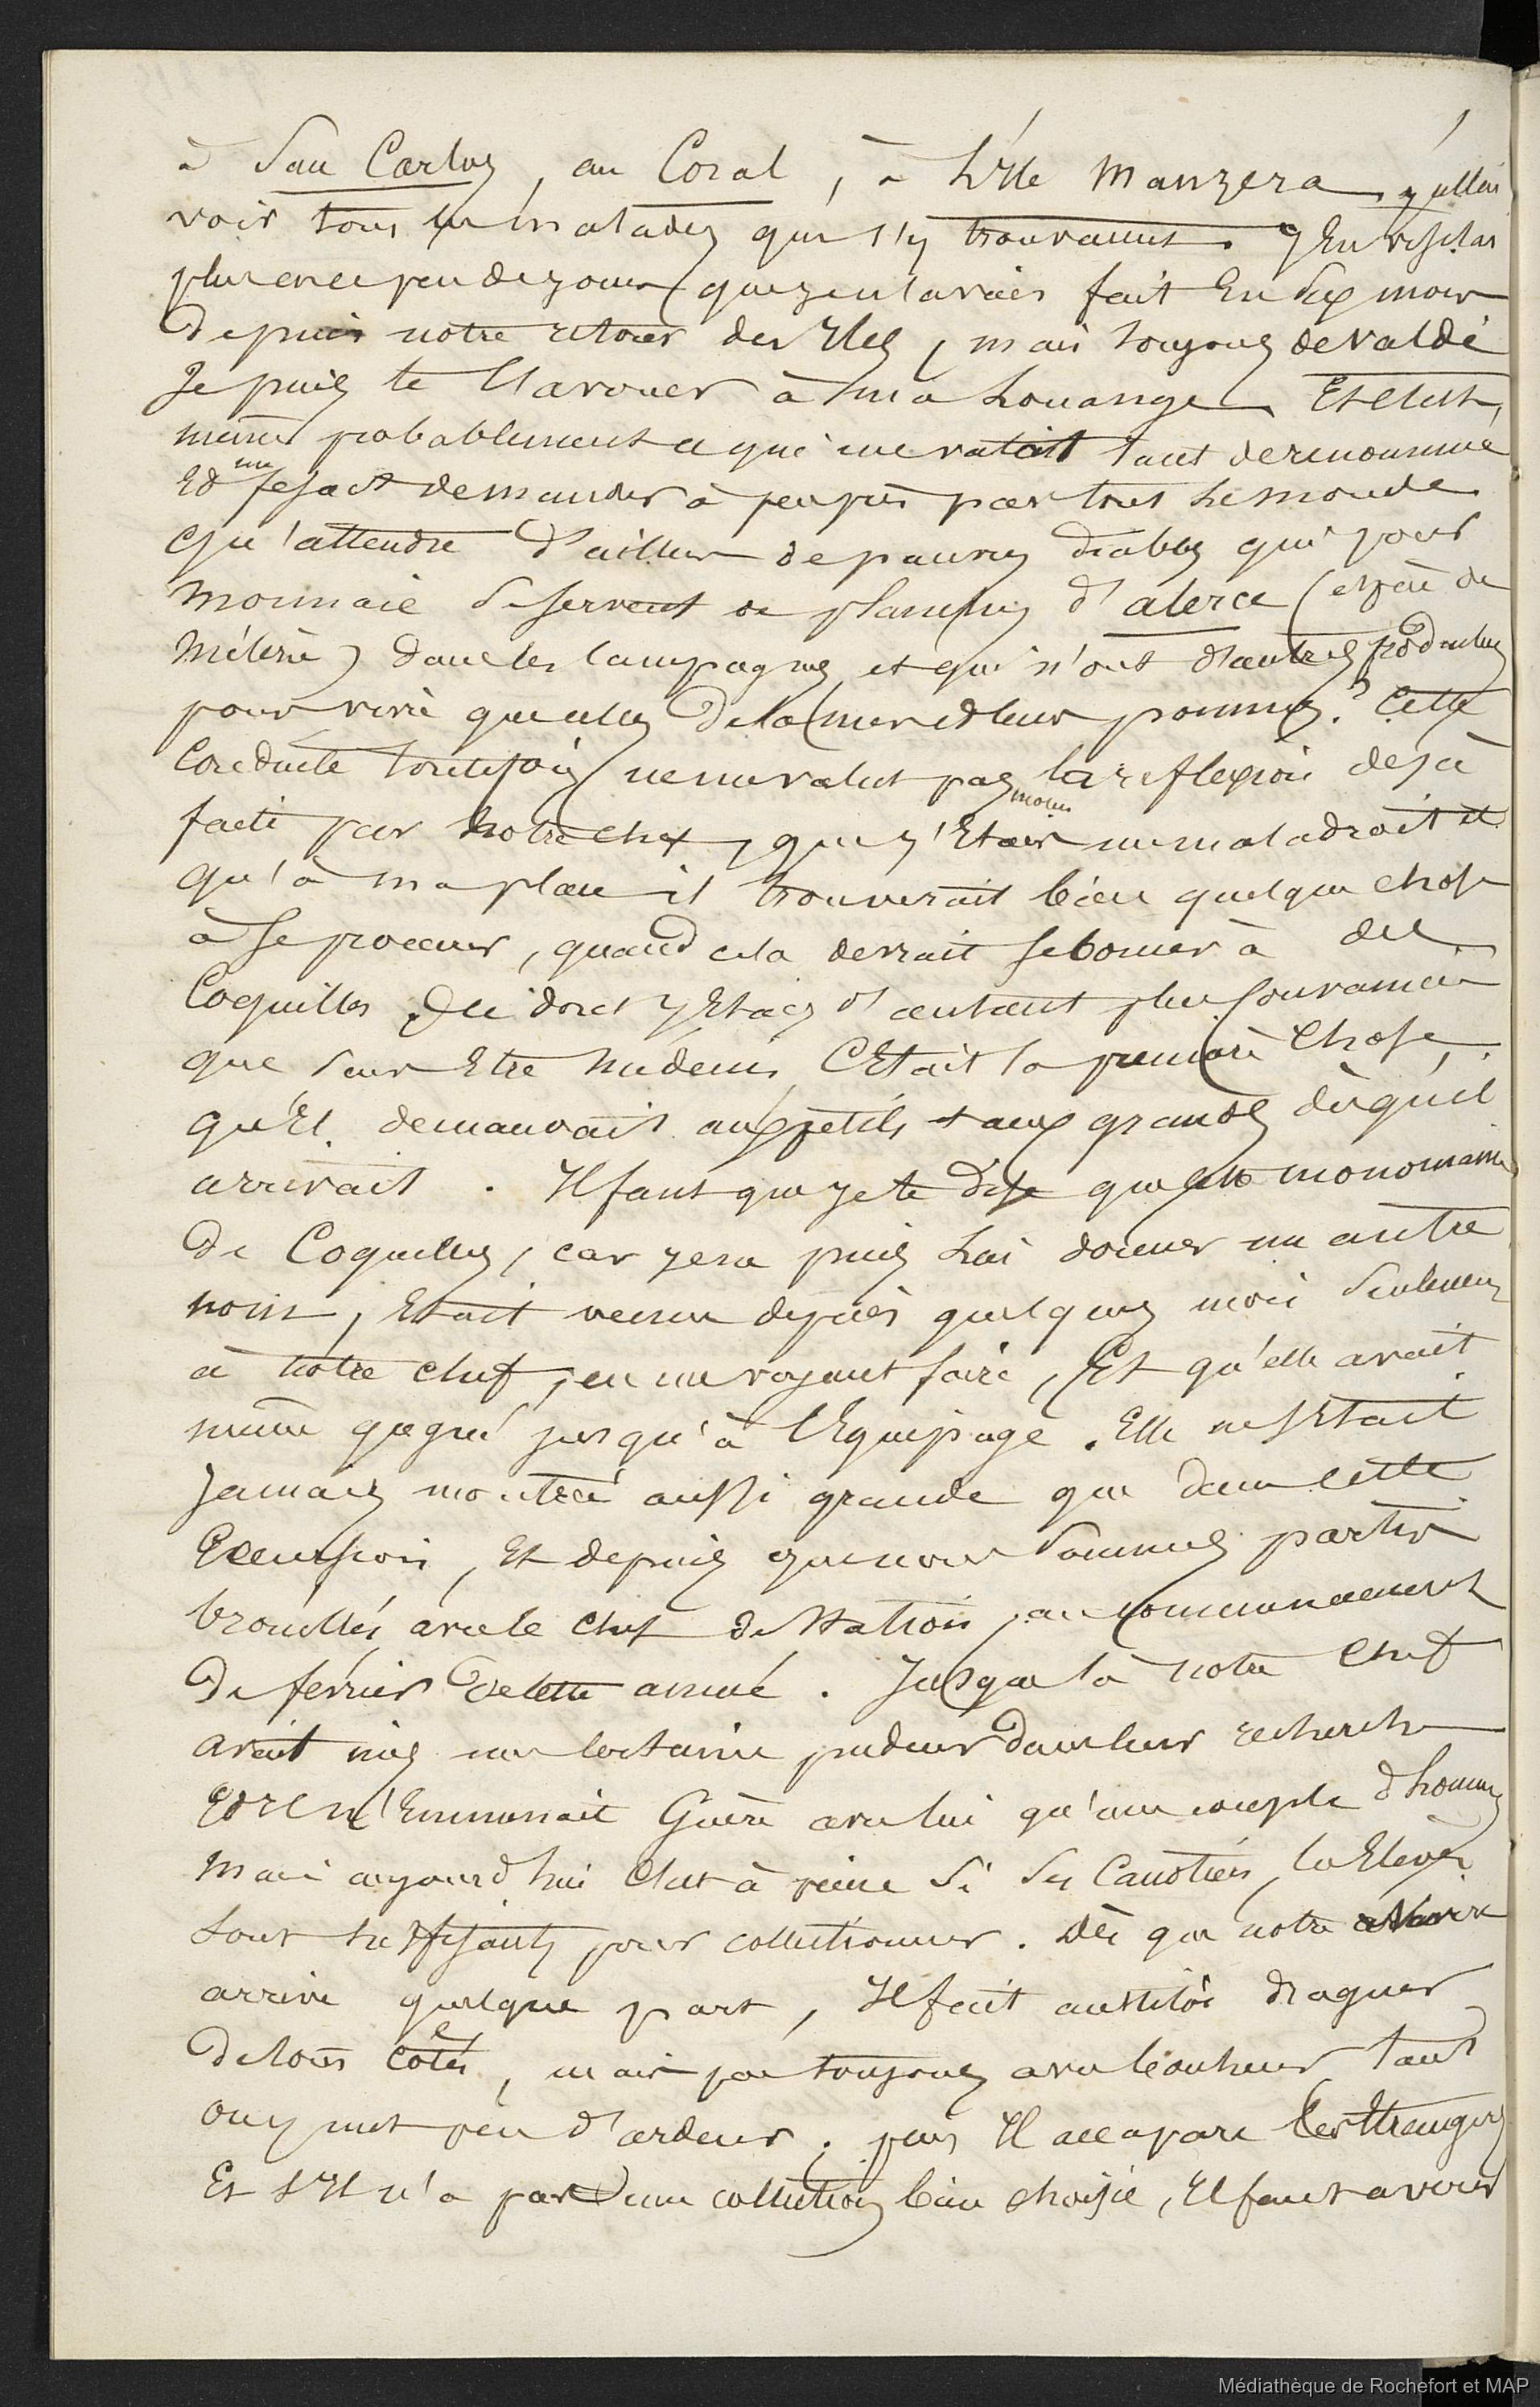 à San Carlos, au Coral, à L'Ile Manzera, j'allai
voir tous les malades qui s'y trouvaient. J'En visitai
plus en ce peu de jours que je n'en avais fait En Six mois
Depuis notre retour des Iles, mais toujours de valdé
Je puis te L'avouer à ma Louange. Et c'est
même probablement ce qui me valait tant de renommée
Et me fesait demander à peu près par tout le monde.
Qu'attendre d'ailleurs de pauvres diables qui pour
monnaie Se servent de planches d'alerce (espèce de
Mélèze) dans les campagnes et qui n'ont d'autres produits
pour vivre que celles De la mer et leurs pommes? Cette
Conduite toutefois ne me valut pas moins la reflexion déjà
faite par Notre chef, que j'Etais un maladroit et
qu'à ma place il trouverait bien quelque chose
à Se procurer, quand cela devrait se borner à des
Coquilles. De ceci j'Etais d'autant plus convaincu
que Sans Etre médecin, C'Etait la première Chose
qu'Il demandait aux petits et aux grands dès qu'il
arrivait. Il faut que je te dise que cette monomanie
De Coquilles, car je ne puis Lui donner un autre
nom, Etait venue depuis quelques mois Seulement
à notre chef, en me voyant faire, Et qu'elle avait
même gagné jusqu'à l'Equipage. Elle ne s'Etait
Jamais montrée aussi grande que dans cette
Excursion, Et depuis que nous Sommes partis
brouillés avec le Chef de Station, au Commencement
De février de cette année. Jusque là notre Chef
avait mis une certaine pudeur dans leur recherche
Et Il n'Emmenait Guère avec lui qu'une couple d'hommes
Mais aujourd'hui C'est à peine Si Ses Canotiers, les Elèves
Sont suffisants pour collectionner. Dès que notre Navire
arrive quelque part, Il fait aussitôt draguer
De tous côtés, mais pas toujours avec bonheur tant
on y met peu d'ardeur; puis Il accapare les Etrangers
Et S'Il n'a pas d'une collection bien choisie, Il faut avoir
Médiathèque de Rochefort et MAP